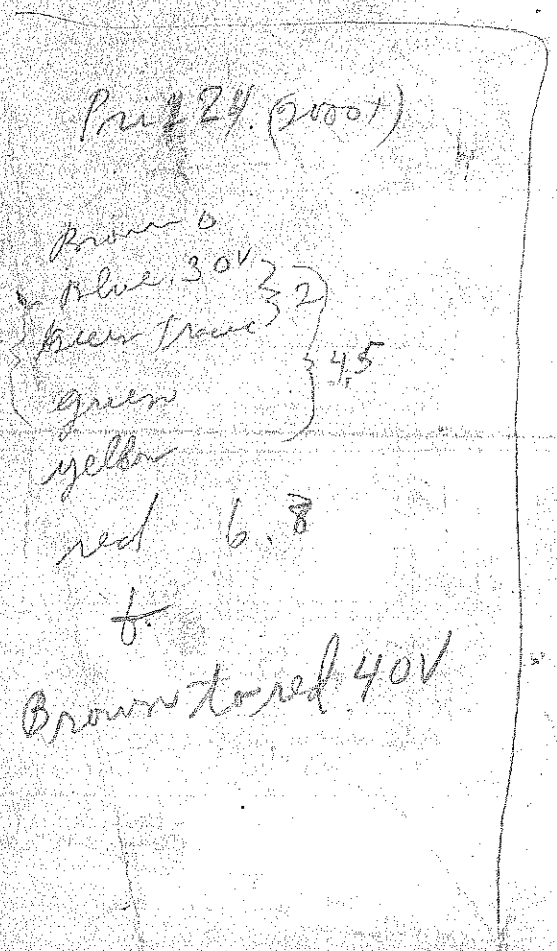 Pri 24. (2000+)
Brown 0
Blue. 30V } 2
green trace
} 4.5
green
yellow
red 6.8
Brown to red 40V